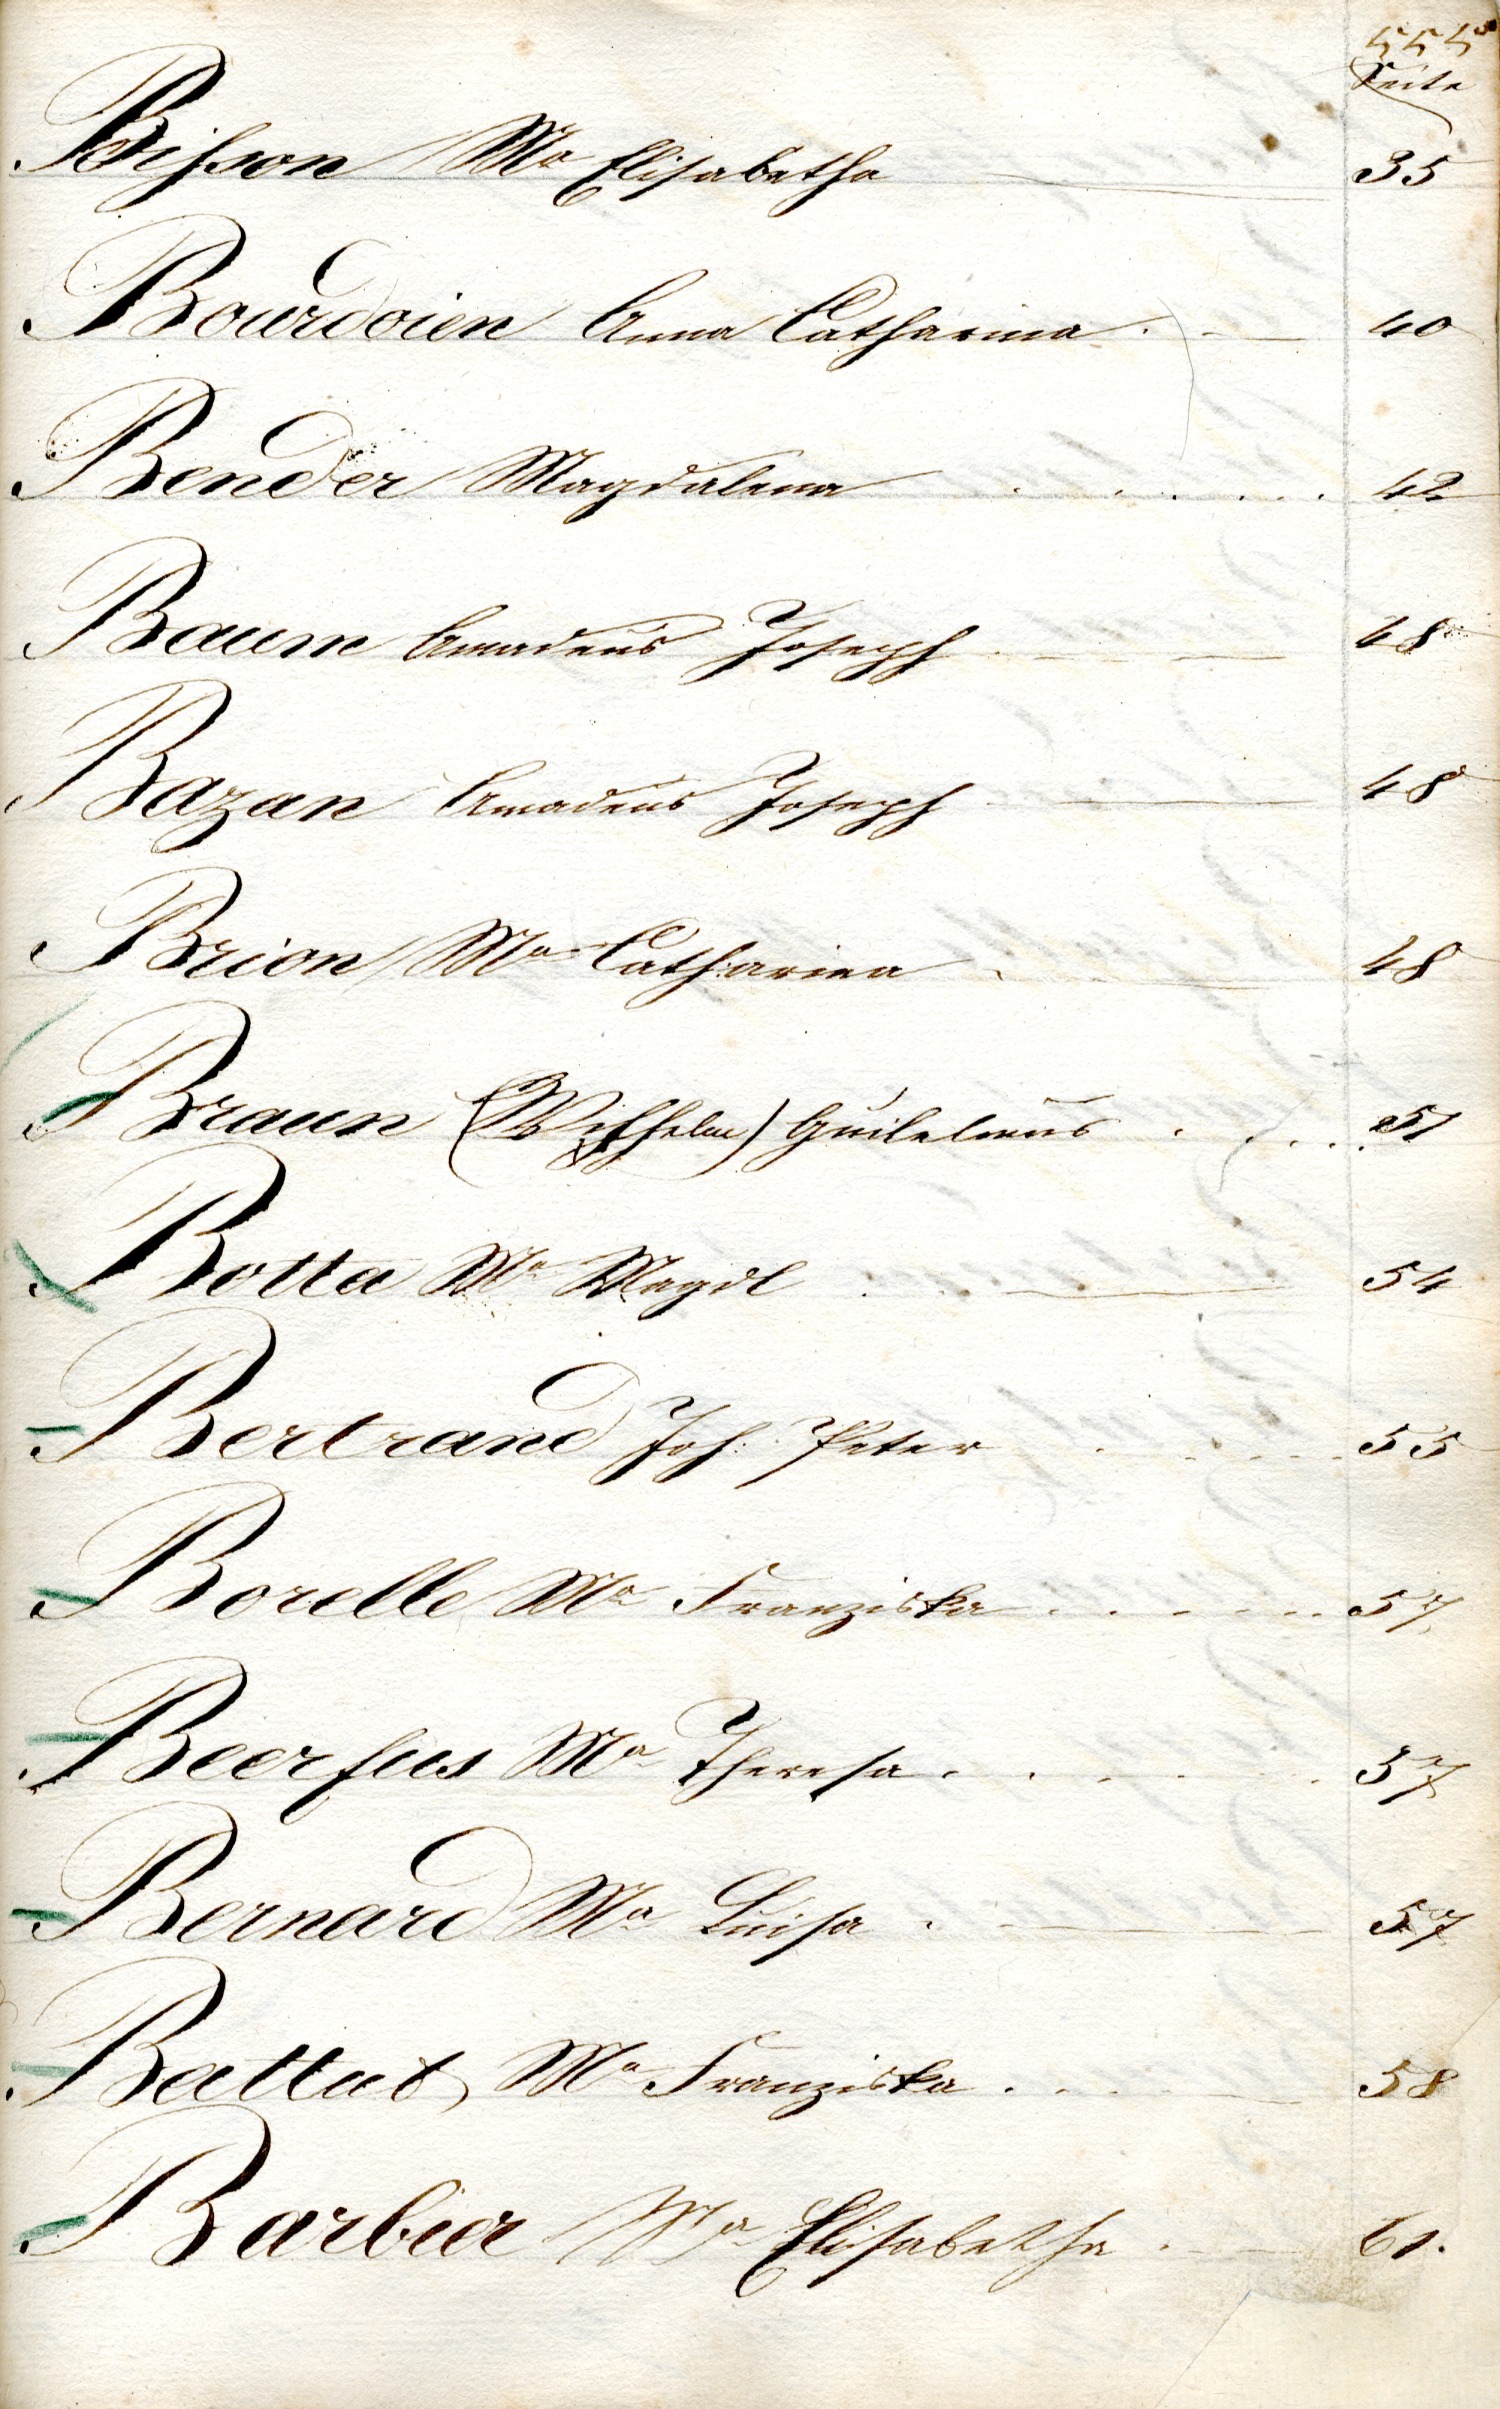 555
Seite
Bisson Ma Elisabetha 35
Bourdoien Anna Catharina 40
Bender Magdalena 42
Baum Amadeus Joseph 48
Bazan Amadeus Joseph 48
Brion Ma Catharina 48
Braun (Wilhelm) Guilelmus 51
Botta Ma Magdl 54
Bertrand Joh. Peter 55
Borelle Ma Franziska 57
Beerfus Ma Theresa 57
Bernard Ma Luisa 57
Battut Ma Franziska 58
Barbier Ma Elisabetha 61.